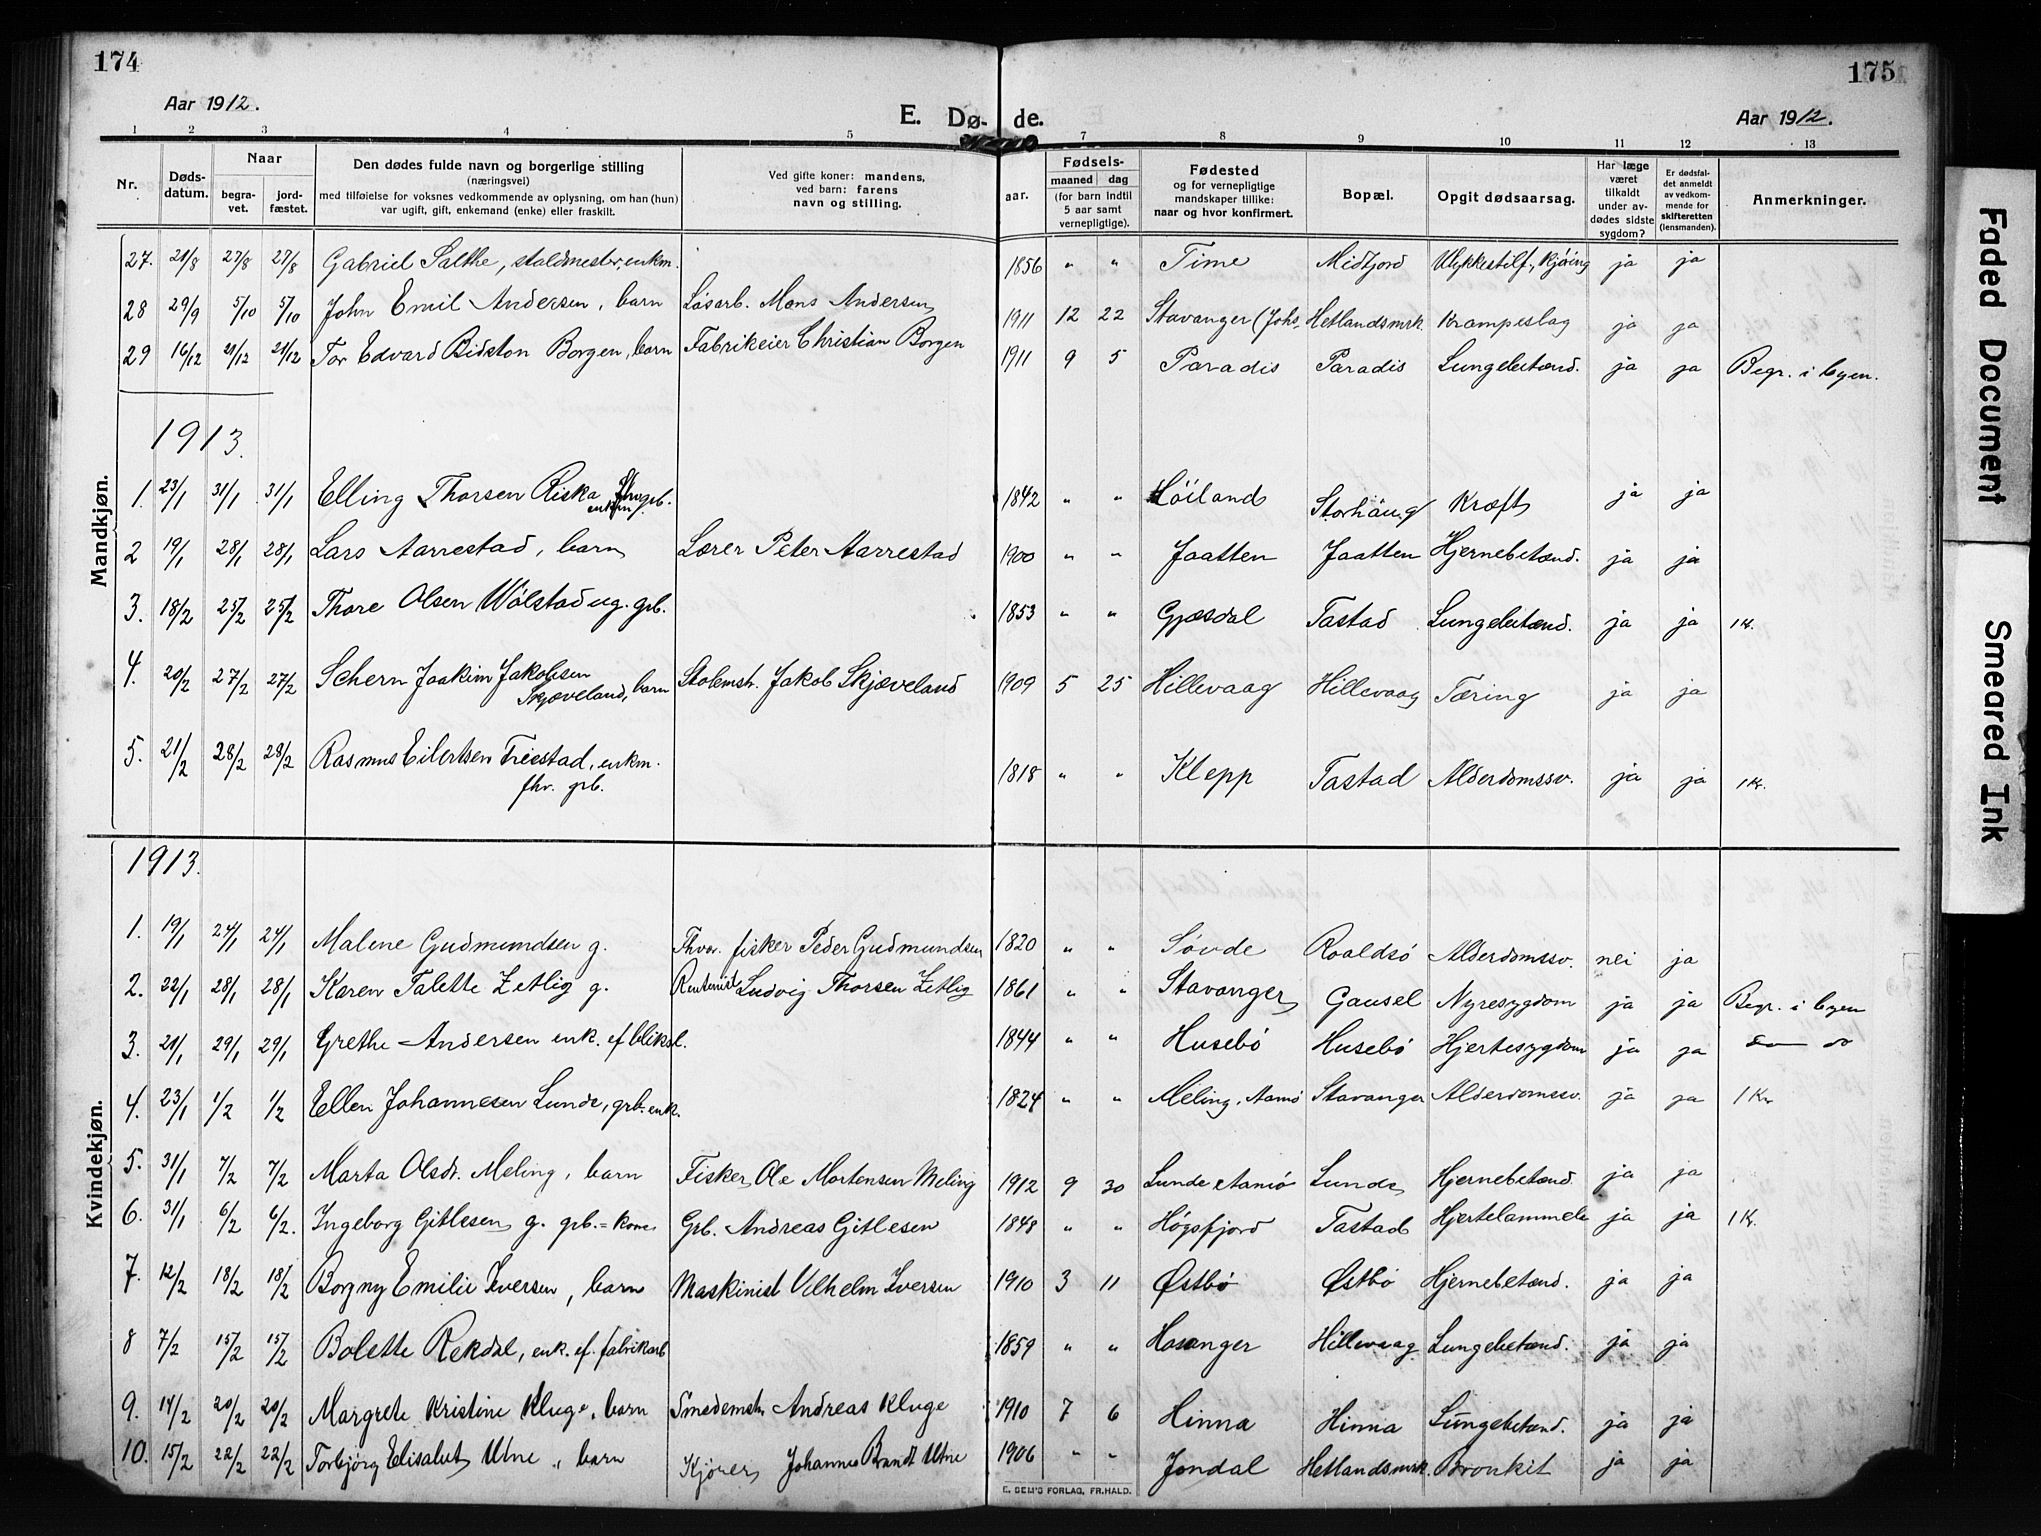 174
175
Aar 1912.
E. Dø- de.
Aar 1912.
1 2 3 4 5 7 8 9 10 11 12 13
Nr. Døds-datum. Naar begra-vet. jord-fæstet. Den dødes fulde navn og borgerlige stilling (næringsvei) med tilføielse for voksnes vedkommende av oplysning, om han (hun) var ugift, gift, enkemand (enke) eller fraskilt. Ved gifte koner: mandens, ved barn: farens navn og stilling. aar. Fødsels- maaned dag (for barn indtil 5 aar samt vernepligtige). Fødested og for vernepligtige mandskaper tillike: naar og hvor konfirmert. Bopæl. Opgit dødsaarsag. Har læge været tilkaldt under av-dødes sidste sygdom? Er dødsfal-det anmeldt av vedkom-mende for skifteretten (lensmanden). Anmerkninger.
Mandkjøn.
27. 21/8 27/8 27/8 Gabriel Salthe, staldmester, enkm. 1856 " " Time Midtjord Ulykkestilf., kjöing ja ja
28 29/9 5/10 5/10 John Emil Andersen, barn Løsarb. Mons Andersen 1911 12 22 Stavanger (Johs. Hetlandsmrk. Krampeslag ja ja
29 16/12 21/12 21/12 Tor Edvard Bidston Borgen, barn Fabrikeier Christian Borgen 1911 9 5 Paradis Paradis Lungebetænd. ja ja Begr. i byen.
1913.
1. 23/1 31/1 31/1 Elling Thorsen Riska fhv. grb. enkm 1842 " " Löiland Storhaug Kræft ja ja
2 19/1 28/1 28/1 Lars Aarrestad, barn Lærer Peter Aarrestad 1900 " " Jaatten Jaatten Hjernebetænd. ja ja
3. 18/2 25/2 25/2 Thore Olsen Wölstad ug. grb. 1853 " " Gjæsdal Tastad Lungebetænd. ja ja 1 K.
4. 20/2 27/2 27/2 Schern Joakim Jakobsen Skjæveland, barn Stolemstr. Jakob Skjæveland 1909 5 25 Hillevaag Hillevaag Tæring ja ja
5. 21/2 28/2 28/2 Rasmus Eilertsen Treestad, enkm. fhv. grb. 1818 " " Klepp Tastad Alderdomssv. ja ja 1 Kr.
Kvindekjøn.
1913.
1. 19/1 24/1 24/1 Malene Gudmundsen g. Fhvr. fisker Peder Gudmundsen 1820 " " Sövde Roaldsö Alderdomssv. nei ja
2. 22/1 28/1 28/1 Karen Talette Zetlig g. Rentenist Ludvig Thorsen Zetlig 1861 " " Stavanger Gausel Nyresygdom ja ja Begr. i byen
3. 21/1 29/1 29/1 Grethe Andersen enk. ef bliksl. 1844 " " Husebö Husebö Hjertesygdom ja ja do
4. 23/1 1/2 1/2 Ellen Johannesen Lunde, grb. enk. 1824 " " Meling, Aamö Stavanger Alderdomssv. ja ja 1 Kr
5. 31/1 7/2 7/2 Marta Olsdr. Meling, barn Fisker Ole Mortensen Meling 1912 9 30 Lunde Aamö Lunde Hjernebetænd ja ja
6. 31/1 6/2 6/2. Ingeborg Gitlesen g. grb.=kone Grb. Andreas Gitlesen 1848 " " Högsfjord Tastad Hjertelammelse ja ja 1 K.
7. 12/2 18/2 18/2 Borgny Emilie Iversen, barn Maskinist Vilhelm Iversen 1910 3 11 Østbö Østbö Hjernebetænd. ja ja
8 7/2 15/2 15/2 Bolette Rekdal, enk. ef. fabrikarb 1859 " " Hosanger Hillevaag Lungebetænd. ja ja
9. 14/2 20/2 20/2 Margrete Kristine Kluge, barn Smedemstr. Andreas Kluge 1910 7 6 Hinna Hinna Lungebetænd. ja ja
10. 15/2 22/2 22/2 Torbjörg Elisabet Utne, barn Kjörer Johannes Brandt Utne 1906 " " Jondal Hetlandsmrk. Bronkit ja ja
E. SEM'S FORLAG, FR.HALD.
Faded Document
Smeared Ink